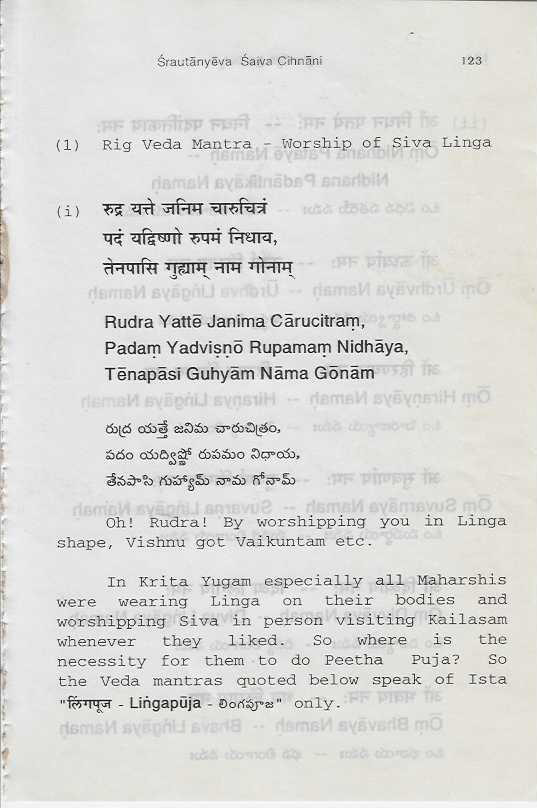 Śrautānyēva Śaiva Cihnāni 123
(1) Rig Veda Mantra - Worship of Siva Linga
(i) रुद्र यत्ते जनिम चारुचित्रं
पदं यद्विष्णो रुपमं निधाय,
तेनपासि गुह्याम् नाम गोनाम्
Rudra Yattē Janima Cārucitraṃ,
Padaṃ Yadviṣṇō Rupamaṃ Nidhāya,
Tēnapāsi Guhyāṃ Nāma Gōnāṃ
రుద్ర యత్తే జనిమ చారుచిత్రం,
పదం యద్విష్ణో రుపమం నిధాయ,
తేనపాసి గుహ్యామ్ నామ గోనామ్
Oh! Rudra! By worshipping you in Linga
shape, Vishnu got Vaikuntam etc.
In Krita Yugam especially all Maharshis
were wearing Linga on their bodies and
worshipping Siva in person visiting Kailasam
whenever they liked. So where is the
necessity for them to do Peetha Puja? So
the Veda mantras quoted below speak of Ista
"लिंगपूज - Liṅgapūja - లింగపూజ" only.